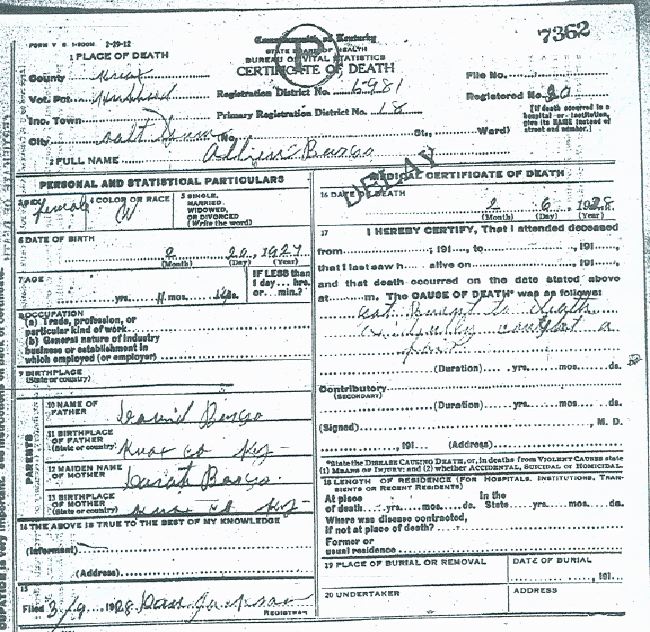 7362
FORM V. S. 2-29-12
Commonwealth of Kentucky
STATE BOARD OF HEALTH
BUREAU OF VITAL STATISTICS
CERTIFICATE OF DEATH
1 PLACE OF DEATH
County Knox
Vot. Pct.
Inc. Town
City
Registration District No. 6981
Primary Registration District No. 18
File No.
Registered No. 20
[If death occurred in a
hospital or institution,
give its NAME instead of
street and number.]
No. St., Ward)
2 FULL NAME
DELAY
PERSONAL AND STATISTICAL PARTICULARS
3 SEX Female
4 COLOR OR RACE W
5 SINGLE,
MARRIED,
WIDOWED,
OR DIVORCED
(Write the word)
6 DATE OF BIRTH
1927
(Month) (Day) (Year)
7 AGE
yrs. mos. ds.
IF LESS than
1 day... hrs.
or... min.?
8 OCCUPATION
(a) Trade, profession, or
particular kind of work
(b) General nature of industry
business or establishment in
which employed (or employer)
9 BIRTHPLACE
(State or country)
PARENTS
10 NAME OF
FATHER
11 BIRTHPLACE
OF FATHER
(State or country) Knox Co Ky
12 MAIDEN NAME
OF MOTHER
13 BIRTHPLACE
OF MOTHER
(State or country) Knox Co Ky
14 THE ABOVE IS TRUE TO THE BEST OF MY KNOWLEDGE
(Informant)
(Address)
15
Filed 3/9 1928
REGISTRAR
MEDICAL CERTIFICATE OF DEATH
16 DATE OF DEATH
2 6 1928
(Month) (Day) (Year)
17 I HEREBY CERTIFY, That I attended deceased
from , 191 , to , 191 ,
that I last saw h alive on , 191 ,
and that death occurred on the date stated above
at m. The CAUSE OF DEATH* was as follows:
got burnt to death
(Duration) yrs. mos. ds.
Contributory
(SECONDARY)
(Duration) yrs. mos. ds.
(Signed) , M. D.
, 191 (Address)
*State the DISEASE CAUSING DEATH, or, in deaths from VIOLENT CAUSES state
(1) MEANS OF INJURY; and (2) whether ACCIDENTAL, SUICIDAL or HOMICIDAL.
18 LENGTH OF RESIDENCE (FOR HOSPITALS, INSTITUTIONS, TRAN-
SIENTS OR RECENT RESIDENTS)
At place In the
of death yrs. mos. ds. State yrs. mos. ds.
Where was disease contracted,
if not at place of death?
Former or
usual residence
19 PLACE OF BURIAL OR REMOVAL
DATE OF BURIAL
, 191
20 UNDERTAKER
ADDRESS